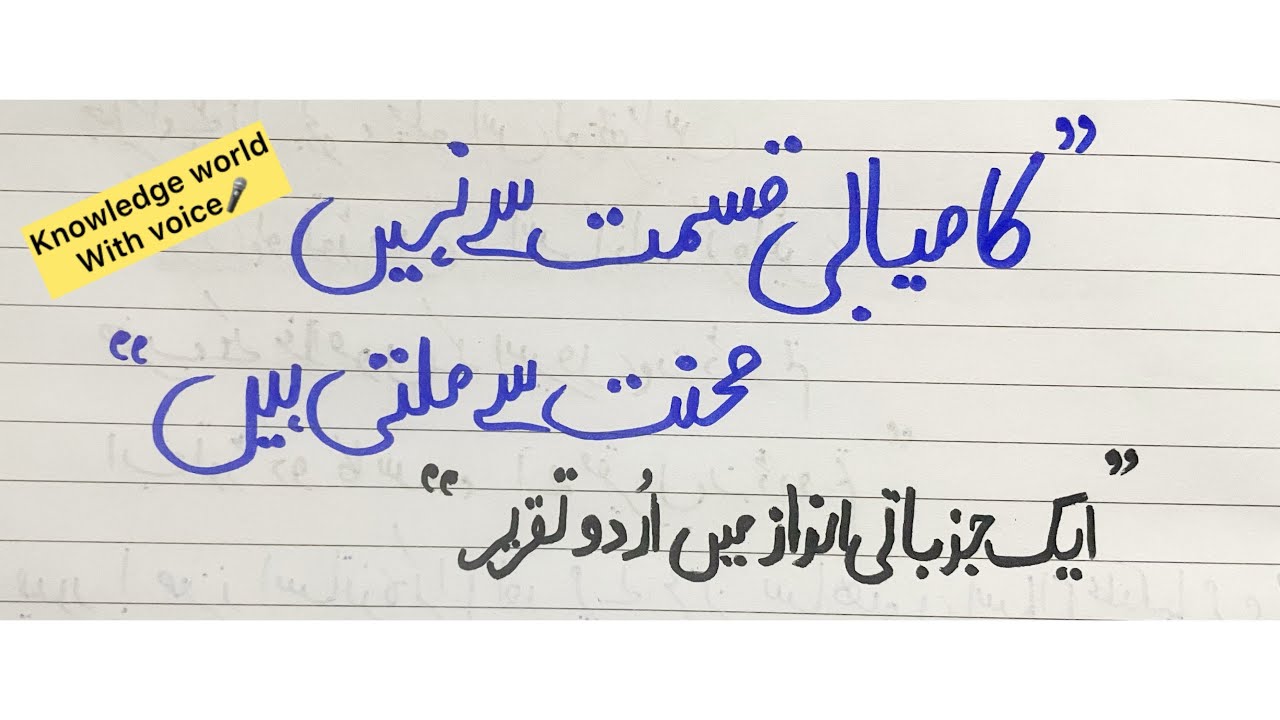 Knowledge world
With voice🎤
”کامیابی قسمت سے نہیں
محنت سے ملتی ہیں“
”ایک جزباتی انداز میں اُردو تقریر“